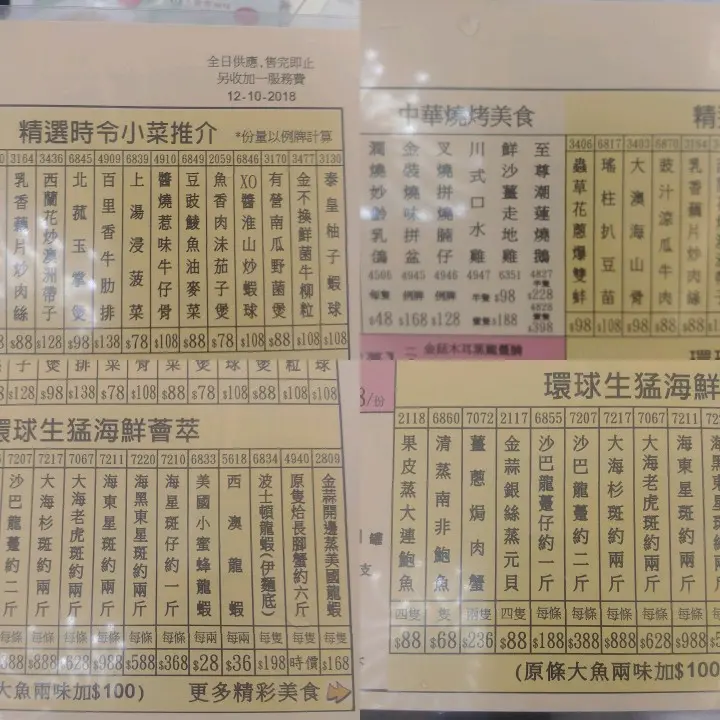 全日供應，售完即止
另收加一服務費
12-10-2018
精選時令小菜推介 *份量以例牌計算
3164 3436 6845 4909 6839 4910 6849 2059 6846 3170 3477 3130
乳香藕片炒肉絲
西蘭花炒澳洲帶子
北菰玉掌煲
百里香牛肋排
上湯浸菠菜
醬燒惹味牛仔骨
豆豉鯪魚油麥菜
魚香肉沫茄子煲
XO醬淮山炒蝦球
有營南瓜野菌煲
金不換鮮菌牛柳粒
泰皇柚子蝦球
$88 $128 $98 $138 $78 $108 $88 $78 $108 $88 $108 $108
中華燒烤美食
潤燒妙齡乳鴿
金裝燒味拼盆
叉燒拼燒腩仔
川式口水雞
鮮沙薑走地雞
至尊潮蓮燒鵝
4506 4945 4946 4947 6351 4827
每隻 例牌 例牌 半隻 $98 半隻 $228
4828
$48 $168 $128 隻 $188 隻 $398
金菇木耳蒸龍躉腩
精
3406 6817 3403 6870 3164
蟲草花蔥爆雙蚌
瑤柱扒豆苗
大澳海山骨
豉汁涼瓜牛肉
乳香藕片炒肉絲
$98 $108 $98 $88 $88
環
子 煲 排 菜 骨 菜 煲 球 煲 粒 球
$128 $98 $138 $78 $108 $88 $78 $108 $88 $108 $108
環球生猛海鮮薈萃
7207 7217 7067 7211 7220 7210 6833 5618 6834 4940 2809
沙巴龍躉約二斤
大海杉斑約兩斤
大海老虎斑約兩斤
海東星斑約兩斤
海黑東星斑約兩斤
海星斑仔約一斤
美國小蜜蜂龍蝦
西澳龍蝦
波士頓龍蝦(伊麵底)
原隻烚長腳蟹約六斤
金蒜開邊蒸美國龍蝦
每條 每條 每條 每條 每條 每條 每兩 每兩 每隻 每隻 每隻
$388 $888 $628 $988 $588 $368 $28 $36 $198 時價 $168
大魚兩味加$100)
更多精彩美食
/份
環球生猛海鮮
2118 6860 7072 2117 6855 7207 7217 7067 7211
果皮蒸大連鮑魚
清蒸南非鮑魚
薑蔥焗肉蟹
金蒜銀絲蒸元貝
沙巴龍躉仔約一斤
沙巴龍躉約二斤
大海杉斑約兩斤
大海老虎斑約兩斤
海東星斑約兩斤
四隻 隻 兩隻 四隻 每條 每條 每條 每條 每條
$88 $68 $236 $88 $188 $388 $888 $628 $988
(原條大魚兩味加$100